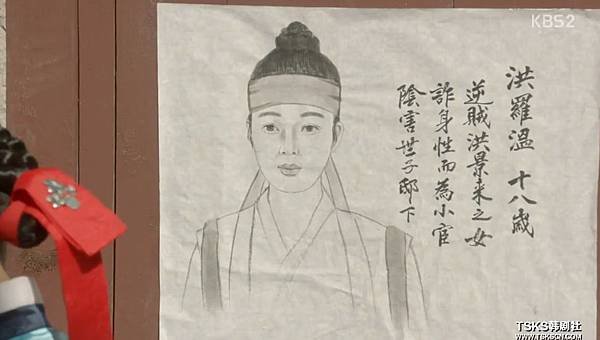 KBS2
洪羅溫 十八歲
逆賊洪景来之女
詐身性而為小宦
陰害世子邸下
TSKS韩剧社
WWW.TSKSCN.COM